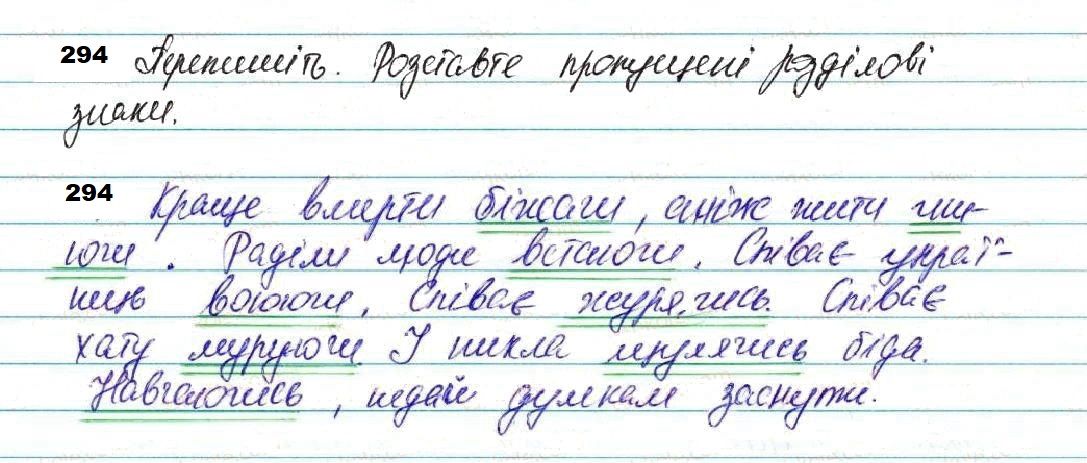 294 Перепишіть. Розставте пропущені розділові
знаки.
294 Краще вмерти біжачи, аніж жити гни-
ючи. Раділи люди встаючи. Співає украї-
нець воюючи, Співає журячись. Співає
хату муруючи І никла щулячись біда.
Навчаючись, недай думкам заснути.